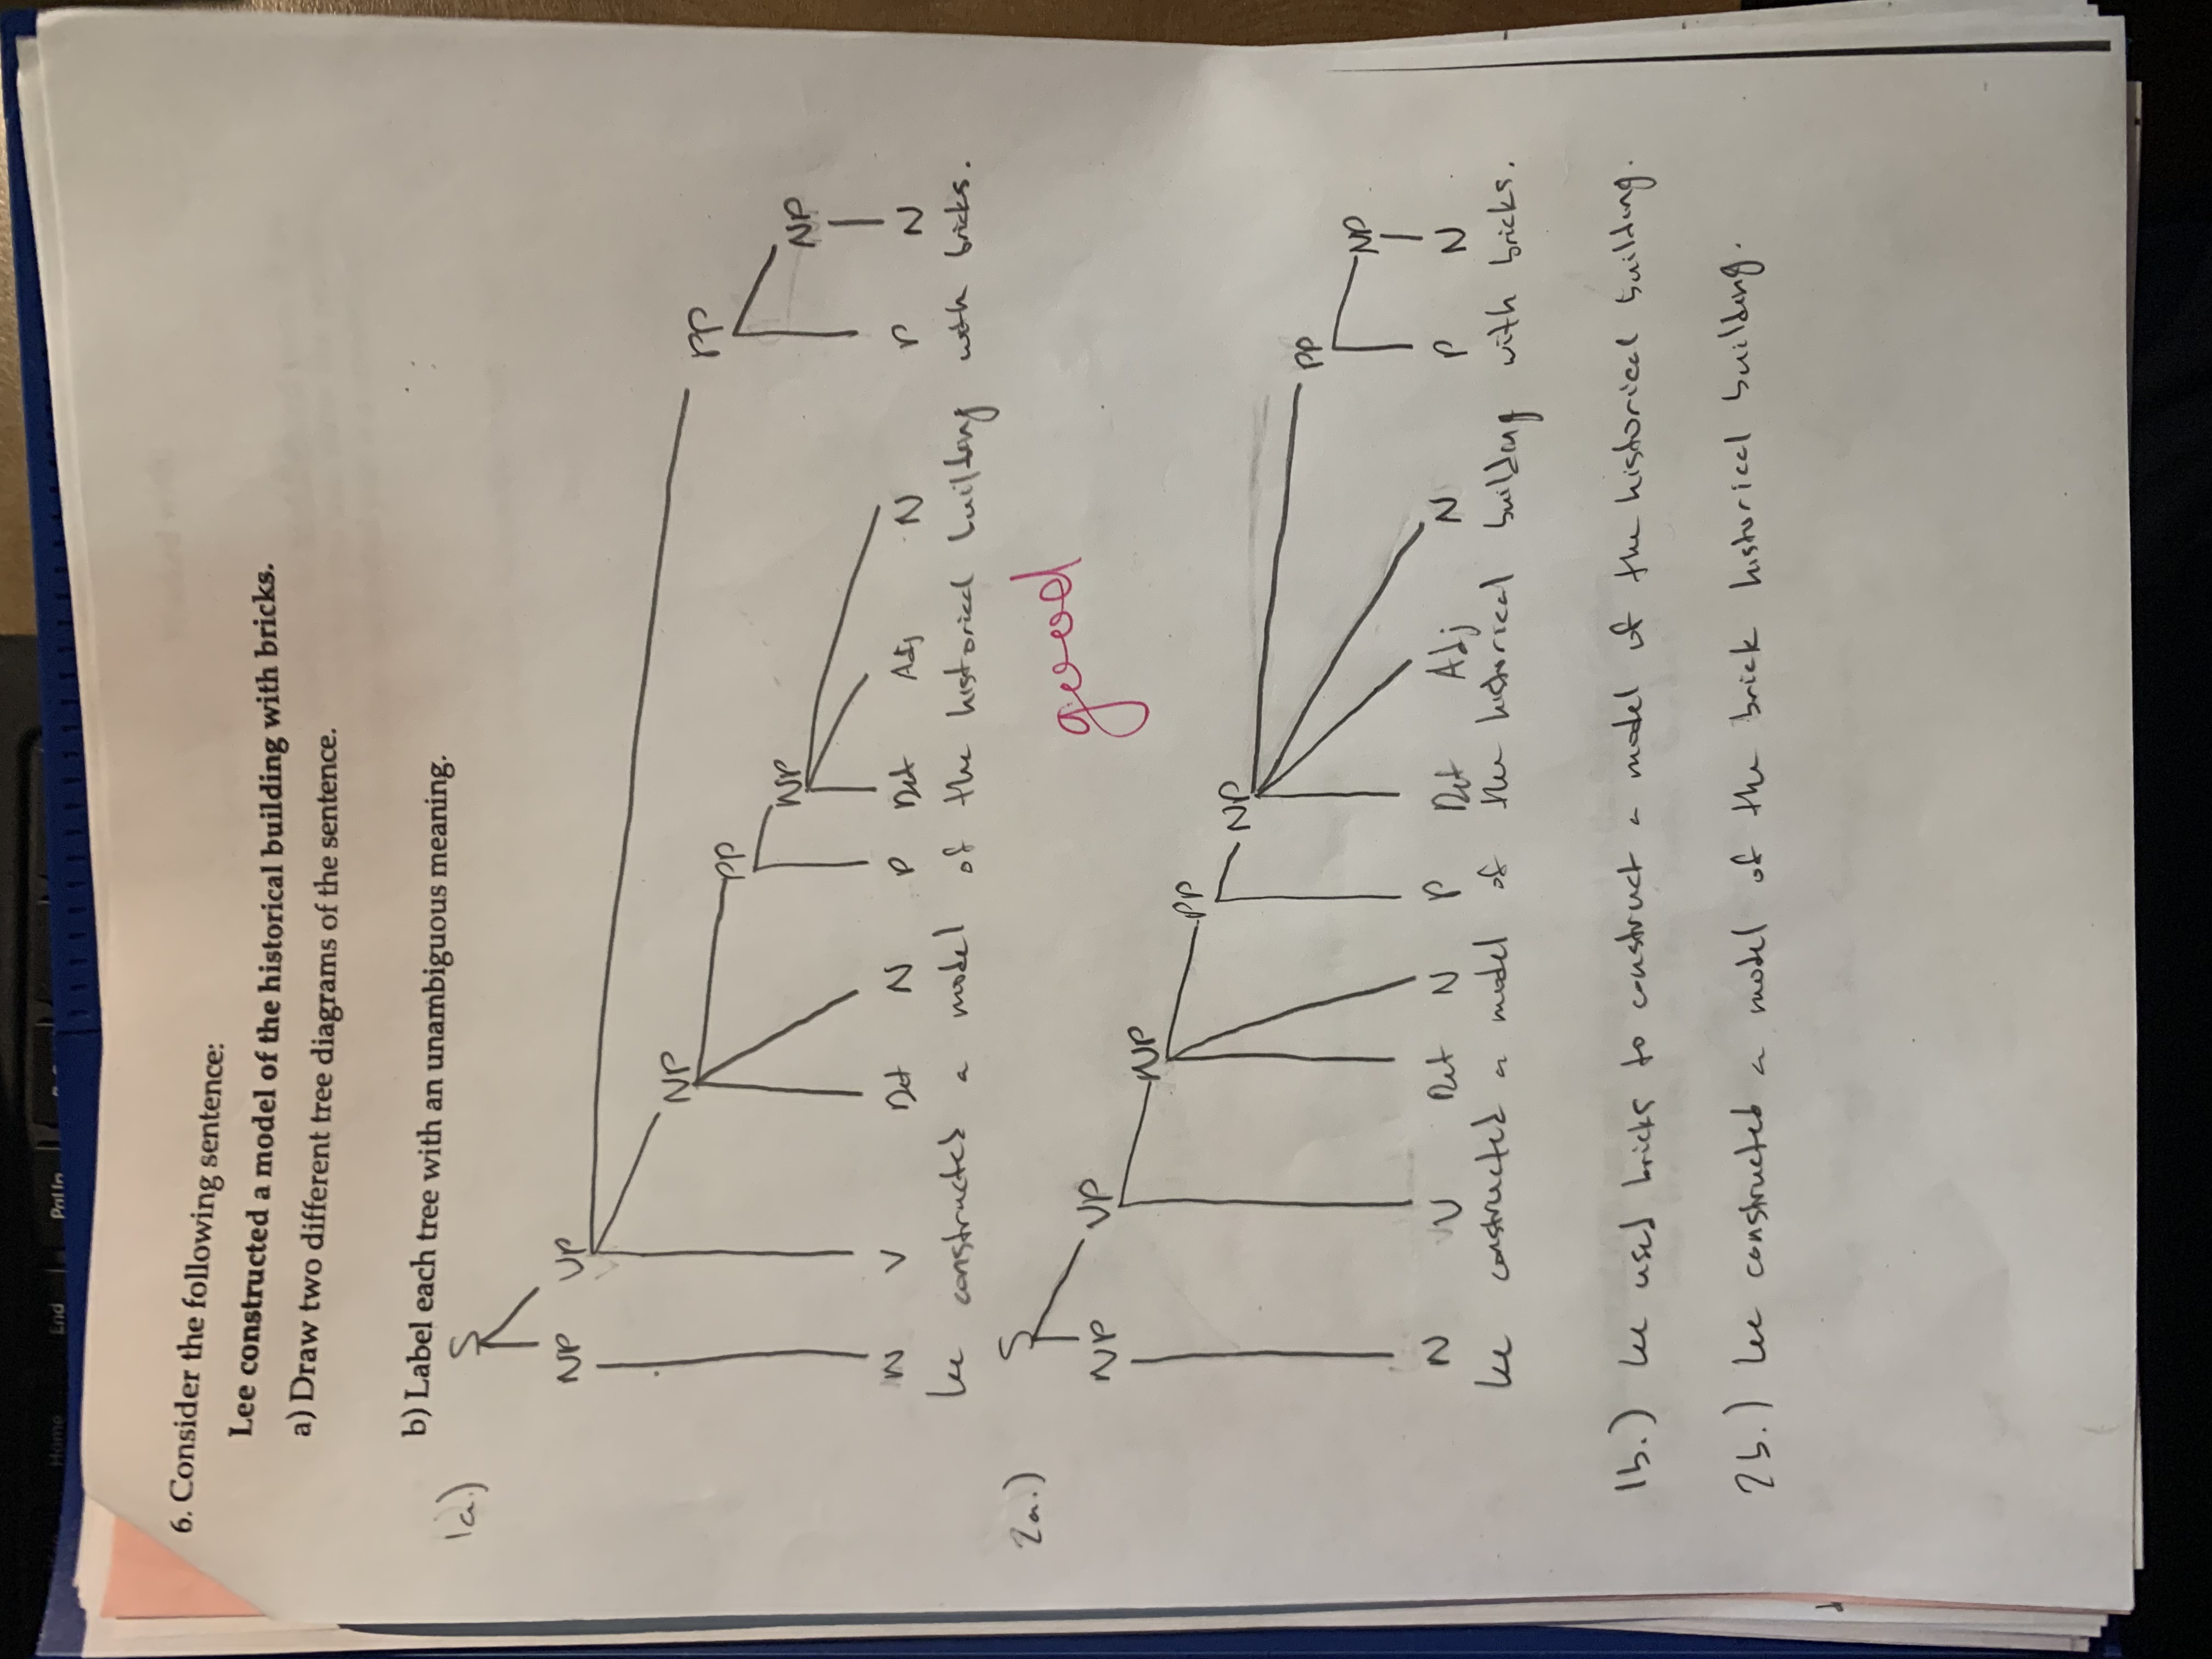 Home End
6. Consider the following sentence:
Lee constructed a model of the historical building with bricks.
a) Draw two different tree diagrams of the sentence.
b) Label each tree with an unambiguous meaning.
1a.) S
NP VP
NP PP
PP
NP NP
N V Det N P Det Adj N P N
Lee constructed a model of the historical building with bricks.
2a.) S
good
NP VP
NP
PP
NP
PP
NP
N V Det N P Det Adj N P N
Lee constructed a model of the historical building with bricks.
1b.) Lee used bricks to construct a model of the historical building.
2b.) Lee constructed a model of the brick historical building.